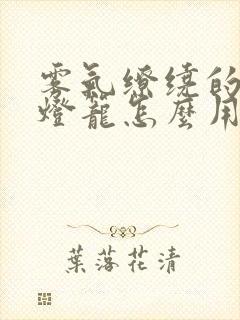 雾氣繚繞的
燈籠怎麼用
葉落花清